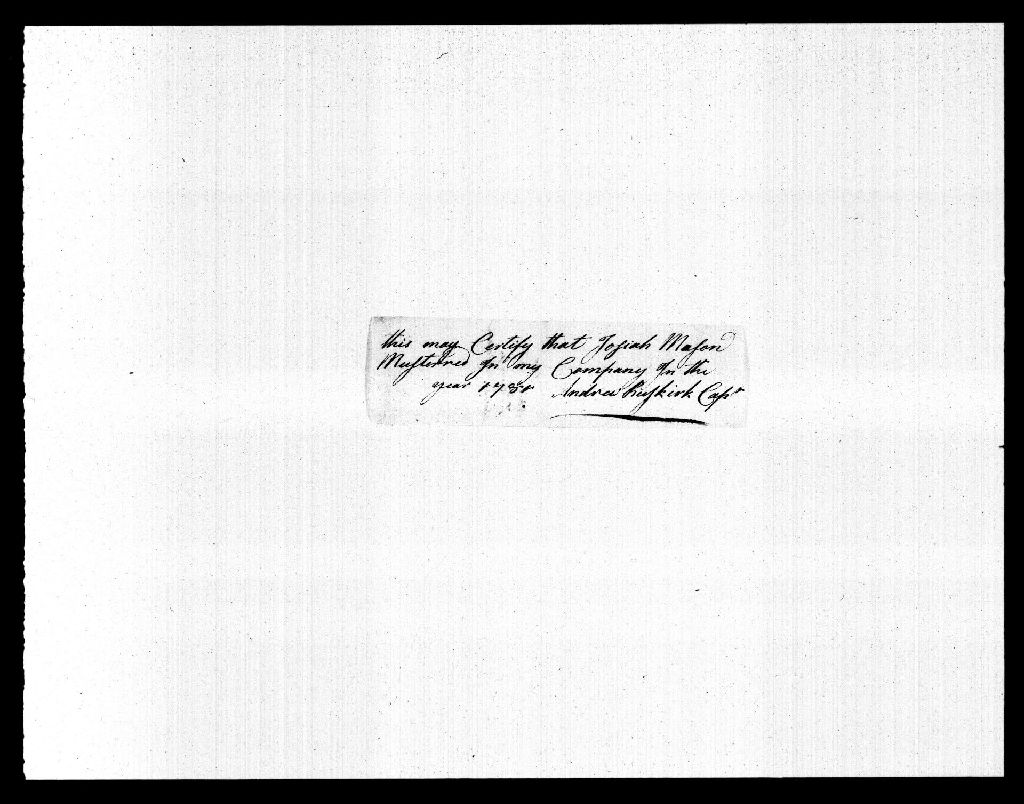 this may Certify that Josiah Mason
Musterred In my Company In the
year 1781 Andrew Capt